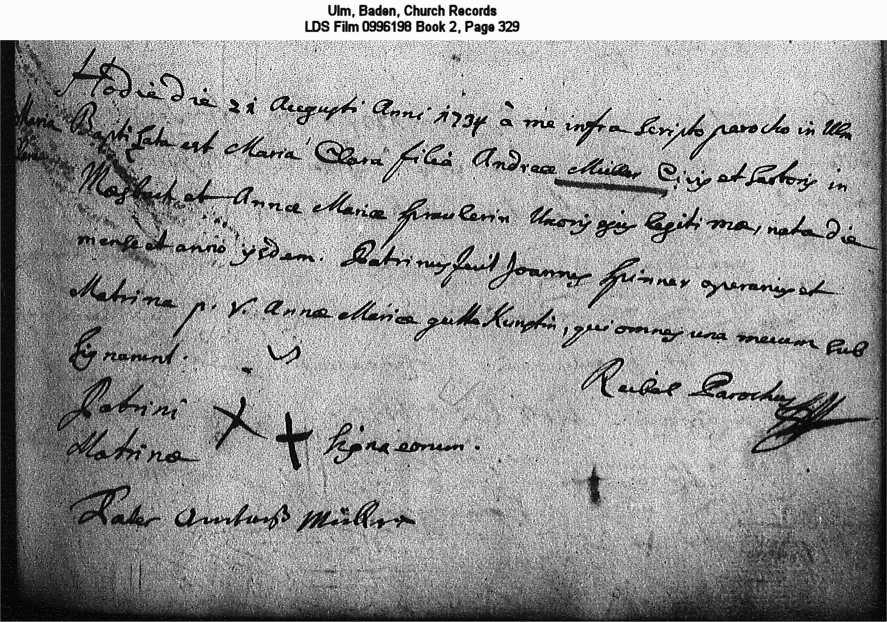 Ulm, Baden, Church Records
LDS Film 0996198 Book 2, Page 329
Hodie die 21 Augusti Anni 1734 à me infra scripto parocho in Ulm
Maria Baptizata est Maria Clara filia Andreae Müller Civis et sartoris in
et Annae Mariae Uxoris ejus legitimae, nata die
mense et anno ysdem. Patrinus fuit Joannes Spinner operarius et
Matrina p. v. Annae Mariae gutta Kunstin, qui omnes una mecum sub
signarunt.
Parochus
Patrini
Matrinae Signa eorum.
Pater Müller